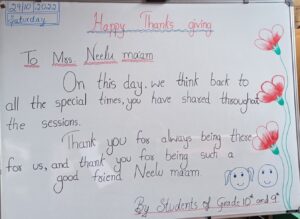 29/10/2022
Saturday
Happy Thanks giving
To Mrs. Neelu ma'am
On this day, we think back to
all the special times, you have shared throughout
the sessions.
Thank you for always being there
for us, and thank you for being such a
good friend Neelu ma'am.
By Students of Grade 10th and 9th